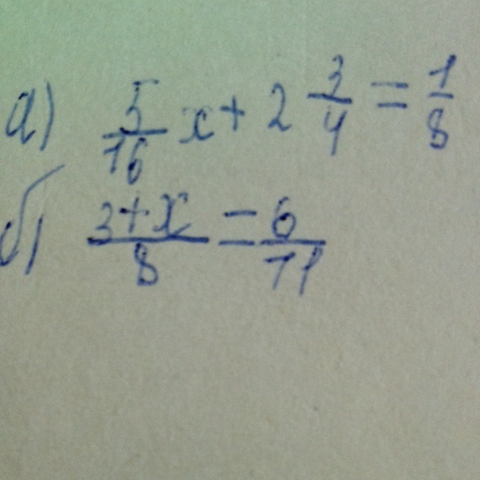 а) 5/16 x + 2 3/4 = 1/8
б) (3+x)/8 = 6/11